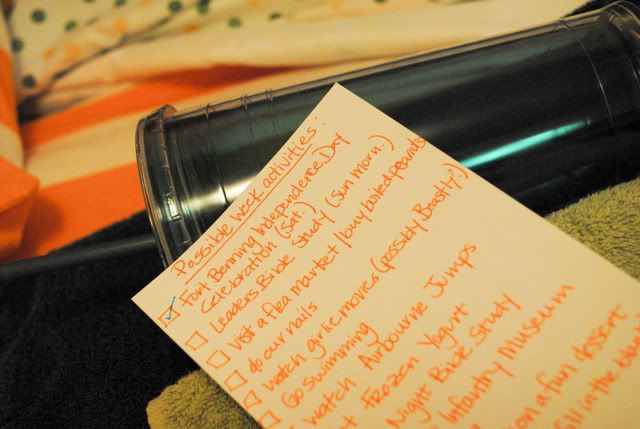 Possible week activities:
Fort Benning Independence Day
Celebration (Sat.)
Leaders Bible Study (Sun morn.)
Visit a flea market / buy boiled peanuts
do our nails
watch girlie movies (possibly Beastly!)
Go swimming
watch Airbourne Jumps
Frozen Yogurt
Night Bible Study
Infantry Museum
on a fun dessert
fill in the